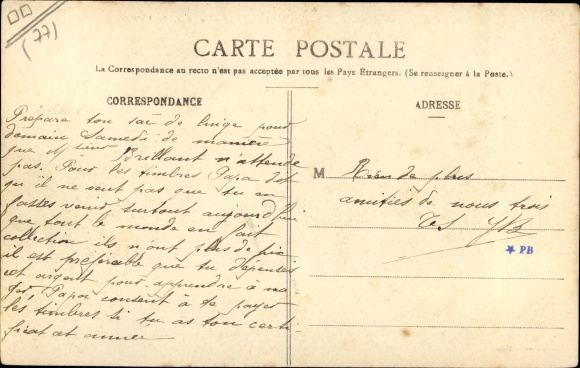 (77)
CARTE POSTALE
La Correspondance au recto n'est pas acceptée par tous les Pays Étrangers. (Se renseigner à la Poste.)
CORRESPONDANCE
Prépare ton sac de linge pour
demain Samedi de manière
que Mr Brillant n'attende
pas. Pour tes timbres Papa dit
qu'il ne veut pas que tu en
fasses venir surtout aujourd'hui
que tout le monde en fait
collection ils n'ont plus de prix
il est préférable que tu dépenses
cet argent pour apprendre à na
ger, Papa consent à te payer
les timbres si tu as ton certi
ficat cet année
ADRESSE
M
Rien de plus
amitiés de nous trois
PB